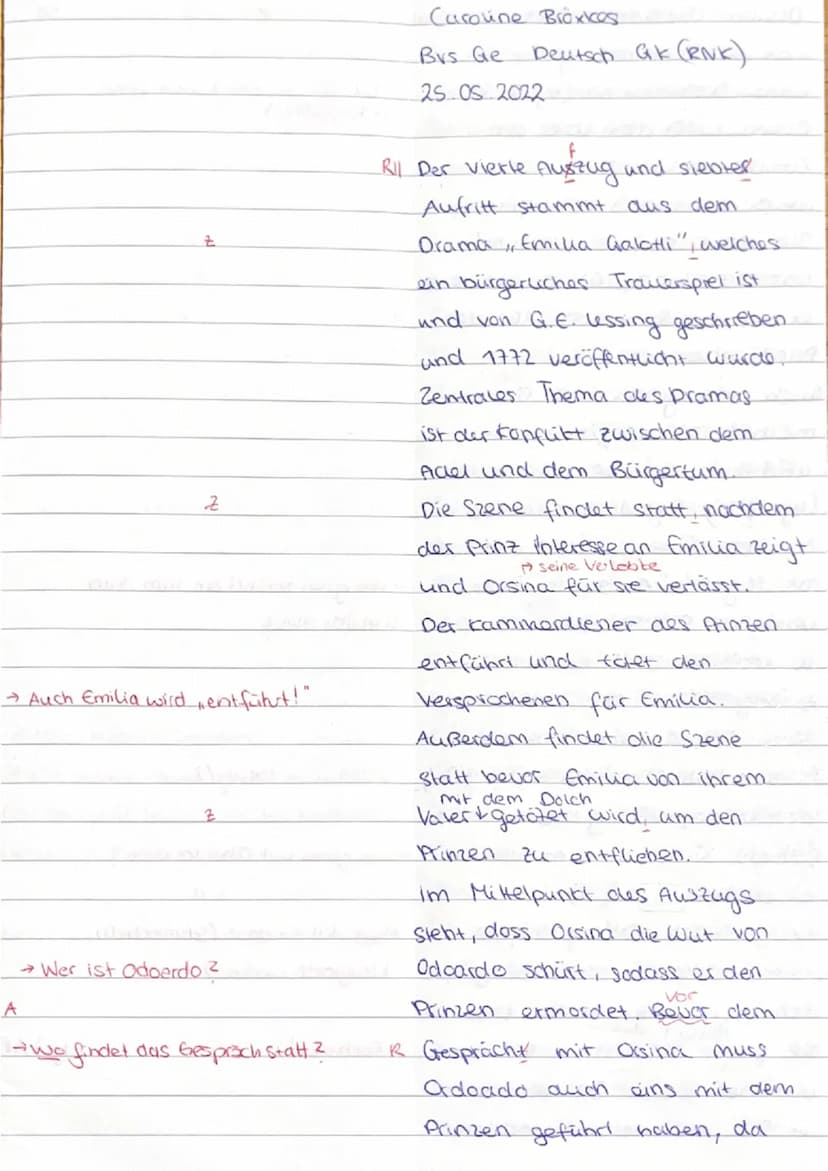 Caroline Bröxkes
Bvs Ge Deutsch GK (RNK)
25.05.2022
f
R|| Der vierte Auszug und siebter
Aufritt stammt aus dem
Z Drama „Emilia Galotti", welches
ein bürgerliches Trauerspiel ist
und von G.E. Lessing geschrieben
und 1772 veröffentlicht wurde.
Zentrales Thema des Dramas
ist der Konflikt zwischen dem
Adel und dem Bürgertum.
Z Die Szene findet statt, nachdem
der Prinz Interesse an Emilia zeigt
→ seine Verlobte
und Orsina für sie verlässt.
Der Kammerdiener des Prinzen
entführt und tötet den
→ Auch Emilia wird „entführt!" Versprochenen für Emilia.
Außerdem findet die Szene
statt bevor Emilia von ihrem
mit dem Dolch
Z Vater getötet wird, um den
Prinzen zu entfliehen.
Im Mittelpunkt des Auszugs
steht, dass Orsina die Wut von
→ Wer ist Odoerdo? Odoardo schürt, sodass er den
vor
A Prinzen ermordet. Bevor dem
→ Wo findet das Gespräch statt? R Gespräch mit Orsina muss
Ordoado auch eins mit dem
Prinzen geführt haben, da